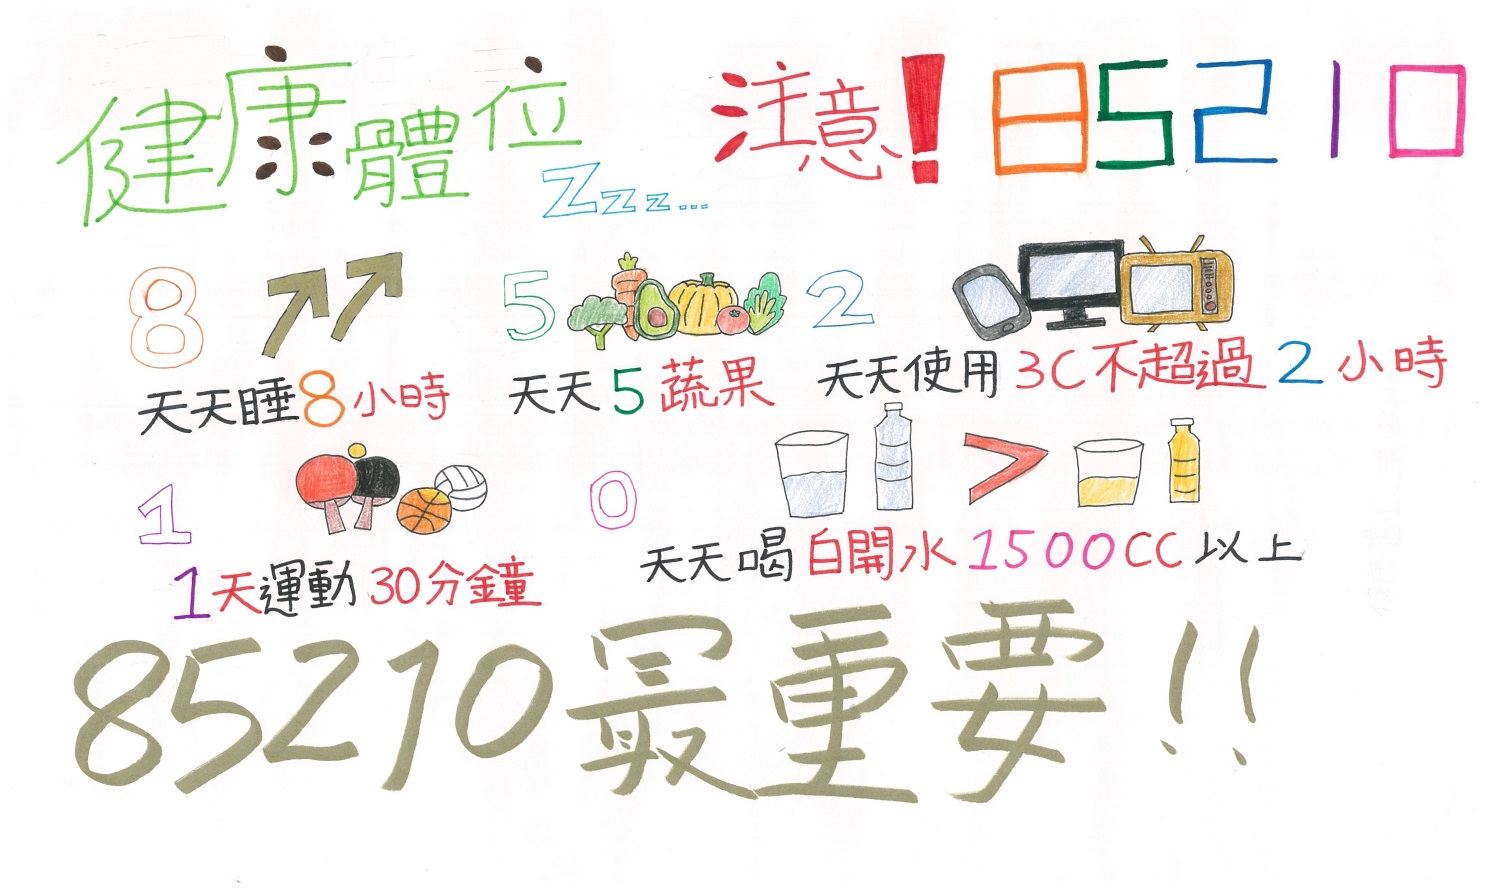 健康體位 注意! 85210
Zzz...
8 5 2
天天睡8小時 天天5蔬果 天天使用3C不超過2小時
1 0 >
1天運動30分鐘 天天喝白開水1500CC以上
85210最重要!!